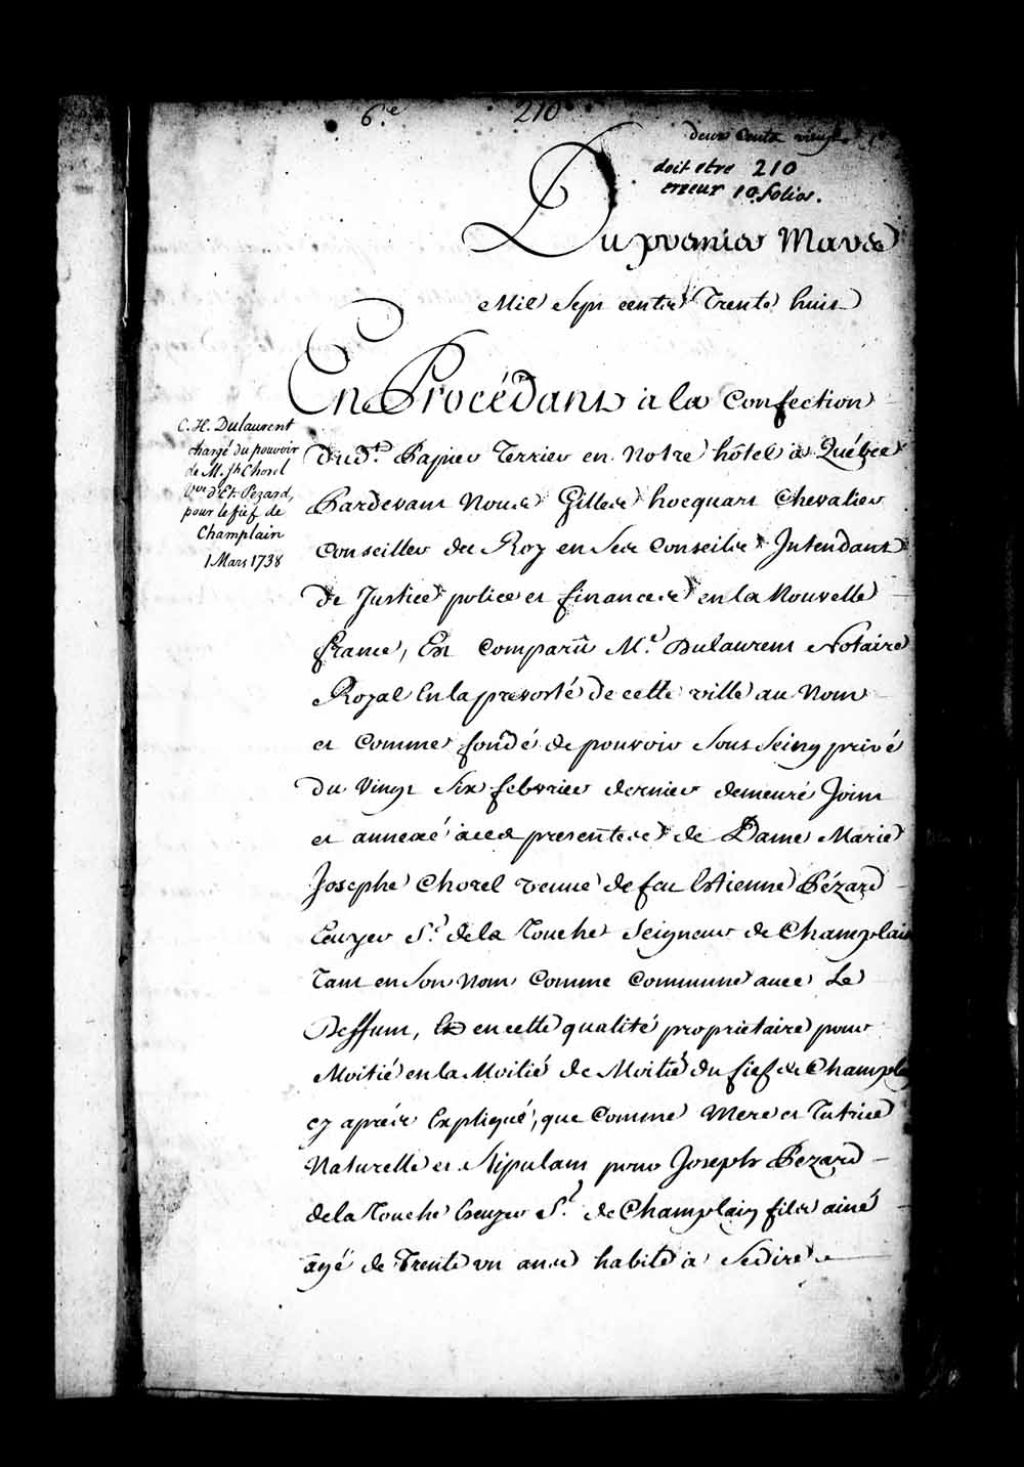 6.e 210
deux Cents vingt
doit etre 210
erreur 10 folios.
Du premier Mars
Mil Sept cents Trente huit
En Procédant à la Confection
C. H. Dulaurent
chargé du pouvoir
de M. Jh Chorel
Vve d'Et. Pezard,
pour le fief de
Champlain
1 Mars 1738
Dud.t Papier Terrier en Notre hôtel à Québec
Pardevant Nous Gilles hocquart Chevalier
Conseiller du Roy en Ses Conseils Intendant
de Justice police et finances en la Nouvelle
france, Est Comparû M.e Dulaurent Notaire
Royal En la prevosté de cette ville au Nom
et Comme fondé de pouvoir Sous Seing privé
du Vingt Six febvrier dernier demeuré Joint
et annexé à ces presentes de Dame Marie
Josephe Chorel veuve de feu Estienne Pézard
Ecuyer S.r de la Touche Seigneur de Champlain
Tant en Son Nom Comme Commune avec Le
Deffunt, Et en cette qualité proprietaire pour
Moitié en la Moitié de Moitié du fief de Champlain
cy aprés Expliqué, que Comme Mere et Tutrice
Naturelle et Stipulant pour Joseph Pezard
de la Touche Ecuyer S.r de Champlain fils ainé
agé de Trente un ans habile à Se dire